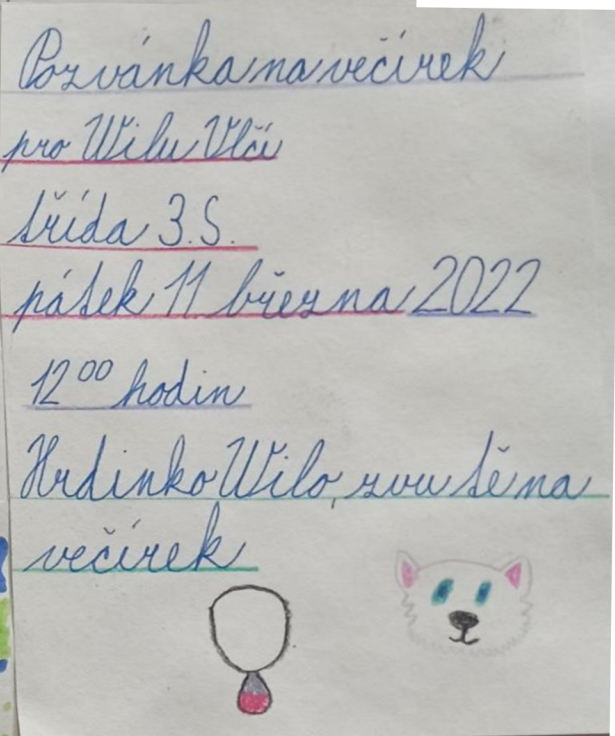 Pozvánka na večírek
pro Wilu Vlčí
třída 3.S.
pátek 11 března 2022
12⁰⁰ hodin
Hrdinko Wilo, zvu tě na
večírek